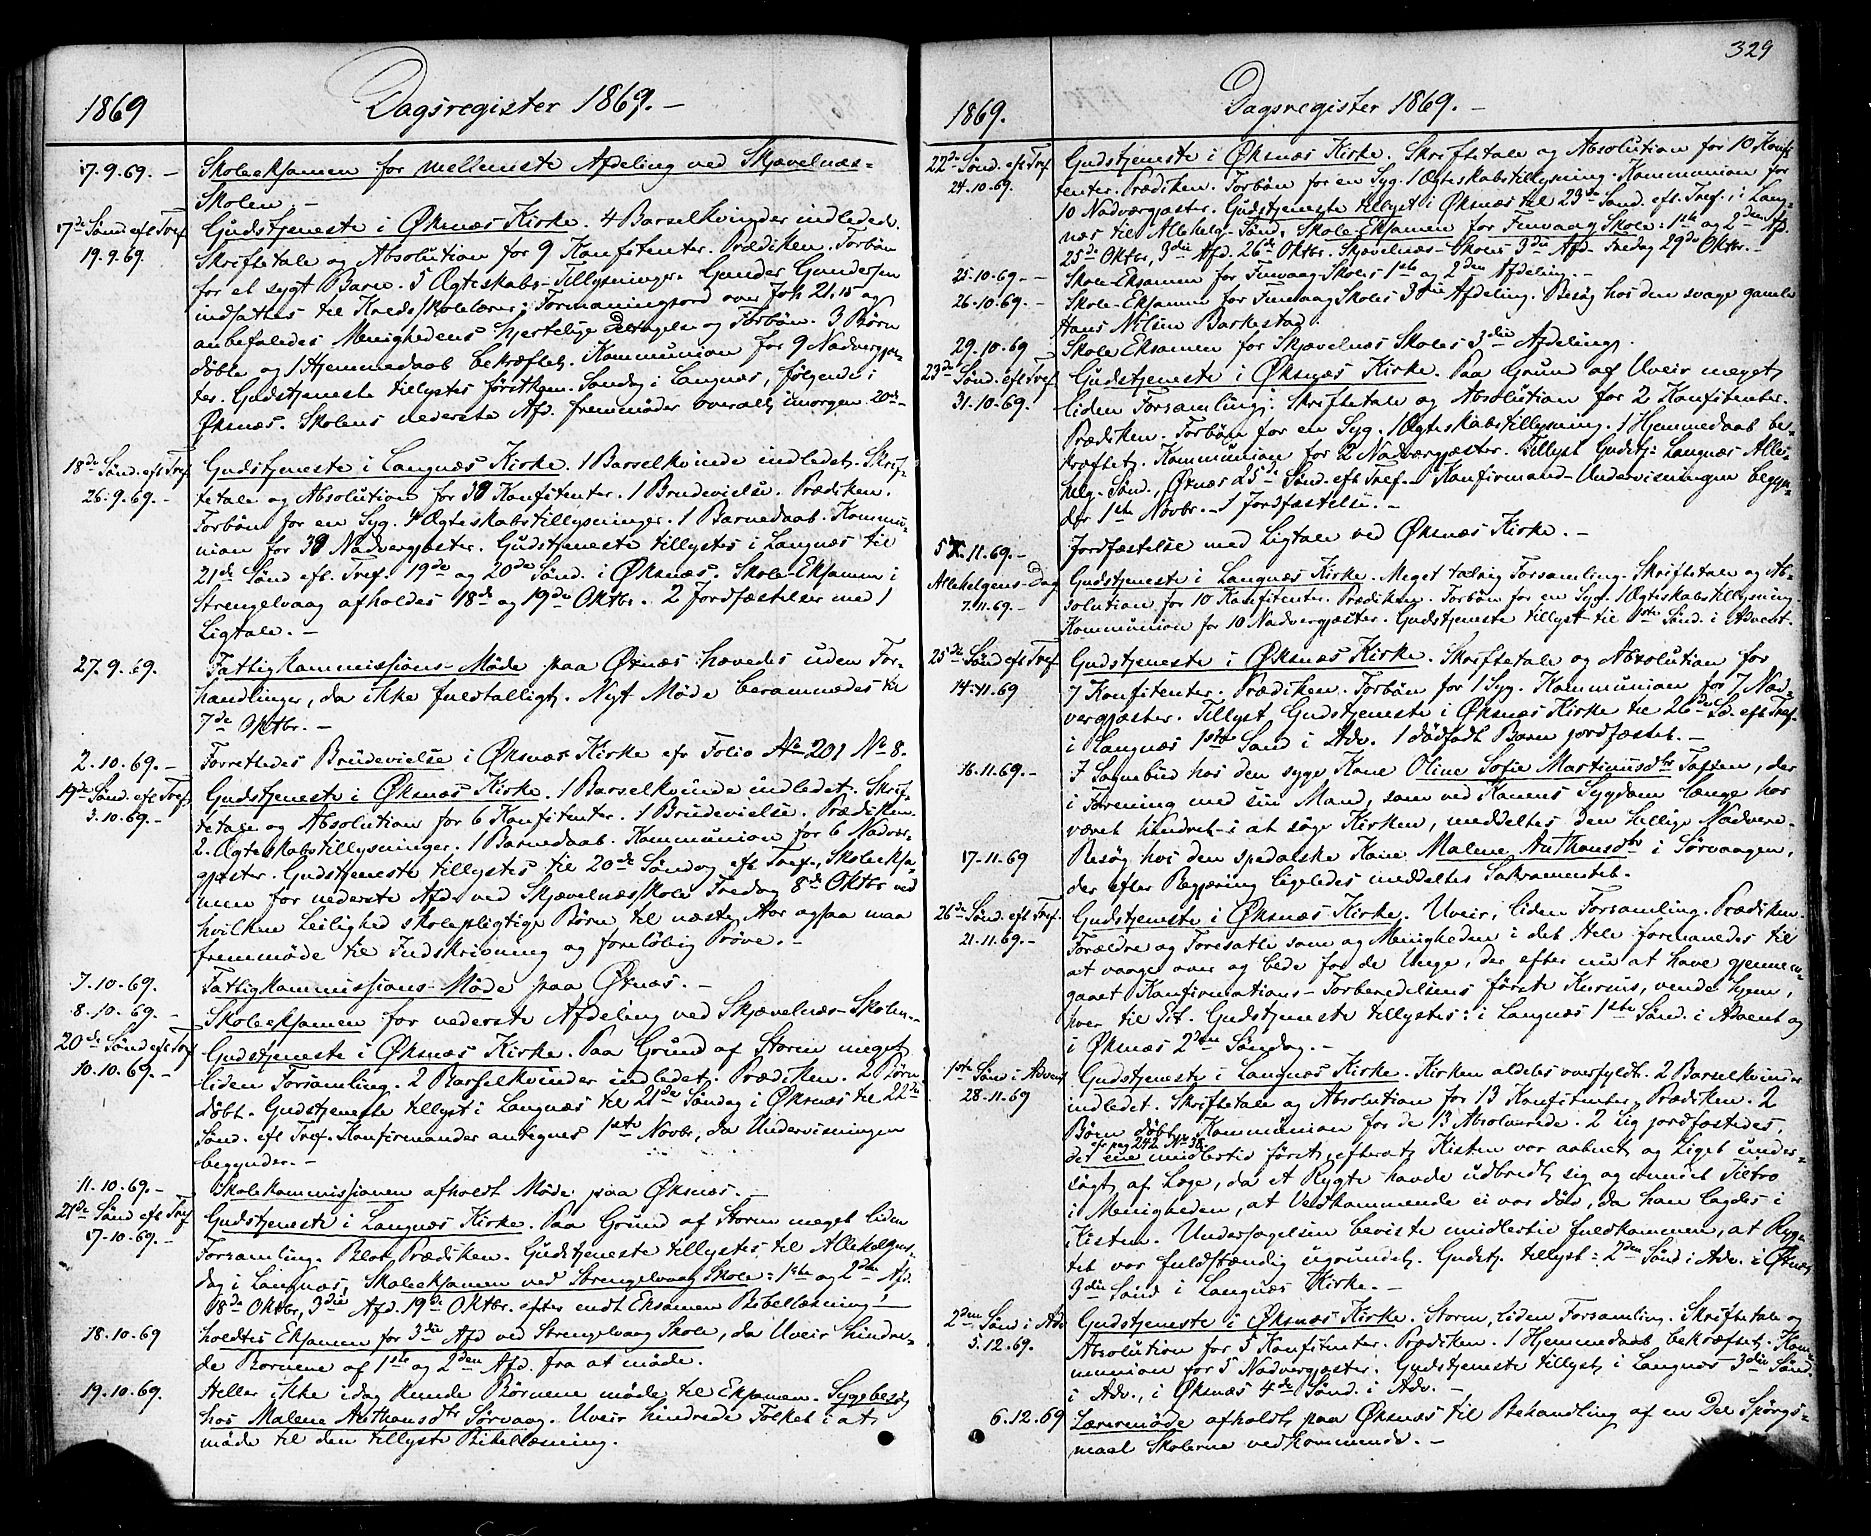 1869
Dagsregister 1869. –
17.9.69. –
Skoleeksamen for mellemste Afdeling ved Skjævelnæs-
Skolen. –
17de Sønd. eft Tref.
19.9.69.
Gudstjeneste i Øksnæs Kirke. 4 Barselkvinder indledede.
Skriftetale og Absolution for 9 Konfitenter. Prædiken. Forbøn
for et sygt Barn. 5 Ægteskabs-Tillysninger. Gunder Gundersen
indsattes til Kredsskolelærer; Formaningsord over Joh 21.15 og
anbefaledes Menighedens hjertelige Deltagelse og Forbøn. 3 Børn
döbte og 1 Hjemmedaab bekræftet. Kommunion for 9 Nadvergjæs-
ter. Gudstjeneste tillystes førstkom. Søndag i Langnæs, følgende i
Øksnæs. Skolens nederste Afd. fremmøder overalt imorgen 20de
18de Sønd. eft Tref
26.9.69. –
Gudstjeneste i Langnæs Kirke. 1 Barselkvinde indledet. Skrif-
tetale og Absolution for 39 Konfitenter. 1 Brudevielse. Prædiken.
Forbön for en Syg. 4 Ægteskabstillysninger. 1 Barnedaab. Kommu-
nion for 39 Nadvergjæster. Gudstjeneste tillystes i Langnæs til
21de Sønd eft. Tref. 19de og 20de Sønd. i Øksnæs. Skole-Eksamen i
Strengelvaag afholdes 18de og 19de Oktbr. 2 Jordfæstelser med 1
Ligtale. –
27.9.69.
Fattigkommissions-Møde paa Øxnæs hævedes uden For-
handlinger, da ikke fuldtalligt. Nyt Møde berammedes til
7de Oktbr. –
2.10.69. –
Forrettedes Brudevielse i Øksnæs Kirke efr Folio 201 No 8.
19de Sønd. eft Tref
3.10.69. –
Gudstjeneste i Øksnæs Kirke. 1 Barselkvinde indledet. Skrif-
tetale og Absolution for 6 Konfitenter. 1 Brudevielse. Prædiken.
2 Ægteskabstillysninger. 1 Barnedaab. Kommunion for 6 Nadver-
gjæster. Gudstjeneste tillystes til 20de Søndag eft Tref., Skoleeksa-
men for nederste Afd. ved Skjævelnæsskole Fredag 8de Oktbr ved
hvilken Leilighed skolepligtige Børn til næste Aar ogsaa maa
fremmøde til Indskrivning og foreløbig Prøve. –
7.10.69.
Fattigkommissions-Møde paa Øxnæs. –
8.10.69. –
Skoleeksamen for nederste Afdeling ved Skjævelnæs-Skolen. –
20de Sønd eft Tref
10.10.69. –
Gudstjeneste i Øksnæs Kirke. Paa Grund af Storm meget
liden Forsamling. 2 Barselkvinder indledet. Prædiken. 2 Børn
døbt. Gudstjeneste tillyst i Langnæs til 21de Søndag i Øksnæs til 22de
Sönd. eft Tref. Konfirmander antegnes 1ste Novbr, da Undervisningen
begynder. –
11.10.69. –
Skolekommissionen afholdt Møde paa Øksnæs. –
21de Sønd eft Tref
17.10.69. –
Gudstjeneste i Langnæs Kirke. Paa Grund af Storm meget liden
Forsamling. Blot Prædiken. Gudstjeneste tillystes til Allehelgens-
dag i Langnæs, Skoleeksamen ved Strengelvaag Skole: 1ste og 2den Afd.
18de Oktbr, 3die Afd. 19de Oktbr. efter endt Eksamen Bibellæsning –
18.10.69
holdtes Eksamen for 3die Afd ved Strengelvaag Skole, da Uveir hindre-
de Børnene af 1ste og 2den Afd. fra at møde.
19.10.69.
Heller ikke idag kunde Børnene møde til Eksamen. Sygebesøg
hos Malene Anthonsdtr Sørvaag. Uveir hindrede Folket i at
møde til den tillyste Bibellæsning.
329
1869.
Dagsregister 1869. –
22de Sønd. eft Tref
24.10.69.
Gudstjeneste i Øksnæs Kirke. Skriftetale og Absolution for 10 Konfi-
tenter. Prædiken. Forbön for en Syg. 1 Ægteskabstillysning. Kommunion for
10 Nadvergjæster. Gudstjeneste tillyst i Øksnæs til 23de Sönd. eft. Tref., i Lang-
næs til Allehelg-Sønd., Skole Eksamen for Finvaag Skole: 1ste og 2den Afd.
25de Oktbr, 3die Afd. 26de Oktbr. Skjævelnæs-Skoles 3die Afd. Fredag 29de Oktbr. –
25.10.69. –
Skole-Eksamen for Finvaag-Skoles 1ste og 2den Afdeling. –
26.10.69. –
Skole-Eksamen for Finvaag Skoles 3die Afdeling. Besøg hos den svage gamle
Hans Nilsen Barkestad.
29.10.69
Skole Eksamen for Skjævelnæs Skoles 3die Afdeling.
23de Sønd. eft Tref
31.10.69.
Gudstjeneste i Øksnæs Kirke. Paa Grund af Uveir meget
liden Forsamling. Skriftetale og Absolution for 2 Konfitenter.
Prædiken. Forbøn for en Syg. 1 Ægteskabstillysning. 1 Hjemmedaab be-
kræftet. Kommunion for 2 Nadvergjæster. Tillyst Gudstj. Langnæs Alle-
helg. Sønd., Øxnæs 25de Sønd. eft Tref. – Konfirmand-Undervisningen begyn-
der 1ste Novbr. – 1 Jordfæstelse. –
5.11.69. –
Jordfæstelse med Ligtale ved Øksnæs Kirke. –
Allehelgens-Dag
7.11.69. –
Gudstjeneste i Langnæs Kirke. Meget talrig Forsamling. Skriftetale og Ab-
solution for 10 Konfitenter. Prædiken. Forbön for en Syg. 1 Ægteskabstillysning.
Kommunion for 10 Nadvergjæster. Gudstjeneste tillyst til 1ste Sønd. i Advent.
25de Sønd eft Tref
14.11.69
Gudstjeneste i Øksnæs Kirke. Skriftetale og Absolution for
7 Konfitenter. Prædiken. Forbön for 1 Syg. Kommunion for 7 Nad-
vergjæster. Tillyst Gudstjeneste i Øksnæs Kirke til 26de Sø. eft Tref.
i Langnæs 1ste Sønd i Adv. 1 dødfødt Barn jordfæstet. –
16.11.69. –
I Sognebud hos den syge Kone Oline Sofie Martinusdtr Tofsen, der
i Forening med sin Mand, som ved Konens Sygdom længe har
været hindret i at søge Kirken, meddeltes den hellige Nadvere. –
17.11.69
Besøg hos den spedalske Kone Malene Anthonsdtr i Sørvaagen,
der efter Begjæring ligeledes meddeltes Sakramentet.
26de Sønd. eft Tref.
21.11.69. –
Gudstjeneste i Øksnæs Kirke. Uveir, liden Forsamling. Prædiken.
Forældre og Foresatte som og Menigheden i det Hele formanedes til
at vaage over og bede for de Unge, der efter nu at have gjennem-
gaaet Konfirmations-Forberedelsens første Kursus, vende hjem,
hver til Sit. Gudstjeneste tillystes: i Langnæs 1ste Sønd. i Advent og
i Øksnæs 2den Søndag. –
1ste Sønd i Advent
28.11.69
Gudstjeneste i Langnæs Kirke. Kirken aldeles overfyldt. 2 Barselkvinder
indledet. Skriftetale og Absolution for 13 Konfitenter. Prædiken. 2
Børn döbt. Kommunion for de 13 Absolverede. 2 Lig jordfæstedes,
efr pag 242 No 38
det ene midlertid först, efterat Kisten var aabnet og Liget under-
søgt af Læge, da et Rygte havde udbredt sig og vundet Tiltro
i Menigheden, at Vedkommende ei var död, da han lagdes i
Kisten. Undersøgelsen beviste midlertid fuldkommen, at Ryg-
tet var fuldstændig ugrundet. Gudstj. tillyst: 2den Sønd i Adv. i Øxnæs
3die Sønd i Langnæs Kirke. –
2den Sønd i Adv
5.12.69.
Gudstjeneste i Øksnæs Kirke. Storm, liden Forsamling. Skriftetale og
Absolution for 5 Konfitenter. Prædiken. 1 Hjemmedaab bekræftet. Kom-
munion for 5 Nadvergjæster. Gudstjeneste tillyst i Langnæs 3die Sønd.
i Adv., i Øksnæs 4de Sønd. i Adv. –
6.12.69
Lærermøde afholdt paa Øksnæs til Behandling af en Del Spörgs-
maal Skolerne vedkommende. –